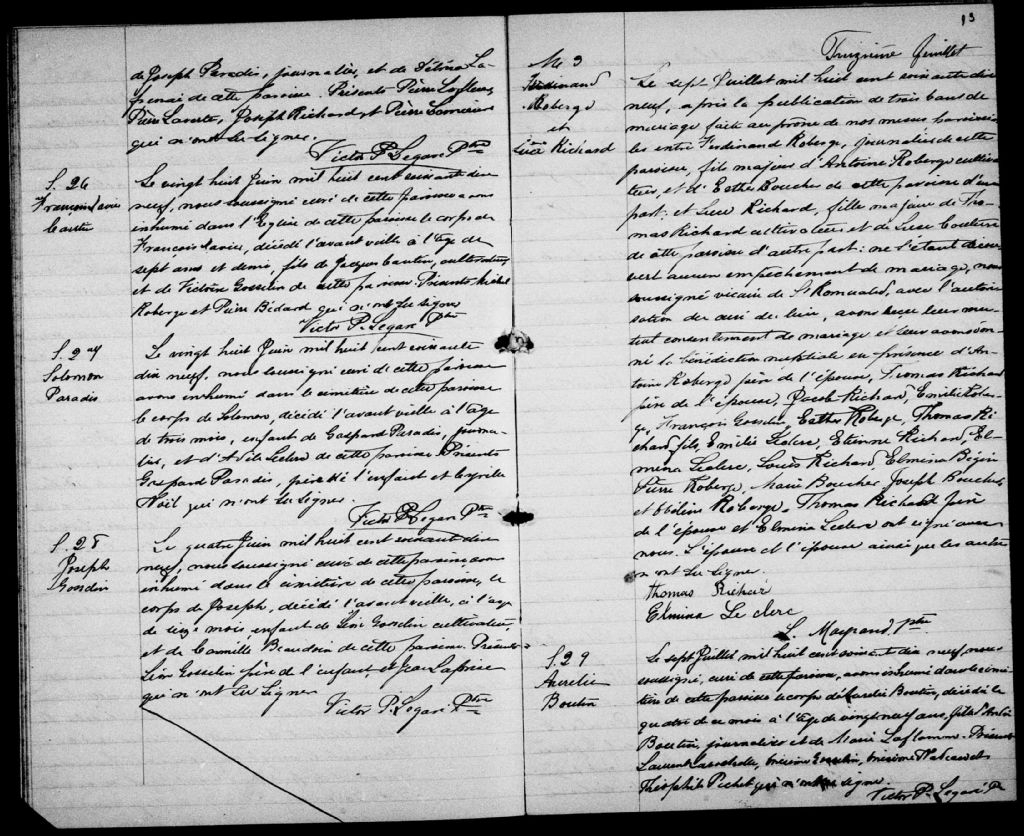 de Joseph Paradis, journalier, et de
de cette paroisse. Présents Pierre Lafleur,
Joseph Richard et Pierre
qui n'ont su signer.
Victor P. Legaré Ptre
S. 26
François Xavier
Le vingt huit Juin mil huit cent soixante dix
neuf, nous soussigné curé de cette paroisse avons
inhumé dans l'Eglise de cette paroisse le corps de
François Xavier, décédé l'avant veille à l'âge de
sept ans et demi, fils de Jacques cultivateur
et de Victoire Gosselin de cette paroisse. Présents Michel
Roberge et Pierre Bédard qui n'ont su signer
Victor P. Legaré Ptre
S. 27
Solomon
Paradis
Le vingt huit Juin mil huit cent soixante
dix neuf, nous soussigné curé de cette paroisse
avons inhumé dans le cimetière de cette paroisse
le corps de Solomon, décédé l'avant veille à l'âge
de trois mois, enfant de Gaspard Paradis, journa-
lier, et d'Adèle Leclerc de cette paroisse. Présents
Gaspard Paradis, père de l'enfant et Cyrille
Noël qui n'ont su signer.
Victor P. Legaré Ptre
S. 28
Joseph
Gosselin
Le quatre Juin mil huit cent soixante dix
neuf, nous soussigné curé de cette paroisse, avons
inhumé dans le cimetière de cette paroisse, le
corps de Joseph, décédé l'avant veille, à l'âge
de seize mois, enfant de Léon Gosselin cultivateur,
et de Camille Beaudoin de cette paroisse. Présents
Léon Gosselin père de l'enfant, et Jean Laprise
qui n'ont su signer
Victor P. Legaré Ptre
13
Treizième feuillet
M 3
Ferdinand
Roberge
et
Luce Richard
Le sept Juillet mil huit cent soixante dix
neuf, après la publication de trois bans de
mariage faite au prône de nos messes paroissia-
les entre Ferdinand Roberge, journalier de cette
paroisse, fils majeur d'Antoine Roberge cultiva-
teur, et d'Esther Boucher de cette paroisse d'une
part; et Luce Richard, fille majeure de Tho-
mas Richard cultivateur et de Luce Couture
de cette paroisse d'autre part: ne s'étant décou-
vert aucun empêchement de mariage, nous
soussigné vicaire de St Romuald, avec l'autori-
sation du curé du lieu, avons reçu leur mu-
tuel consentement de mariage et leur avons don-
né la bénédiction nuptiale en présence d'An-
toine Roberge père de l'époux, Thomas Richard
père de l'épouse, Jacob Richard, Emilie Rober-
ge, François Gosselin, Esther Roberge, Thomas Ri-
chard fils, Emilie Leclerc, Etienne Richard, El-
mina Leclerc, Louis Richard, Elmina Bégin
Pierre Roberge, Marie Boucher, Joseph Boucher,
et Roberge. Thomas Richard père
de l'épouse et Elmina Leclerc ont signé avec
nous. L'époux et l'épouse ainsi que les autres
n'ont su signer.
Thomas Richard
Elmina Le clerc
Ptre
S. 29
Aurelie
Boutin
Le sept Juillet mil huit cent soixante dix neuf, nous
soussigné, curé de cette paroisse, avons inhumé dans le cime-
tière de cette paroisse le corps d'Aurelie Boutin, décédée le
quatre de ce mois à l'âge de vingt neuf ans, fille d'André
Boutin, journalier et de Marie Laflamme. Présents
Laurent Gosselin,
Théophile Pichet qui n'ont su signer
Victor P. Legaré P.